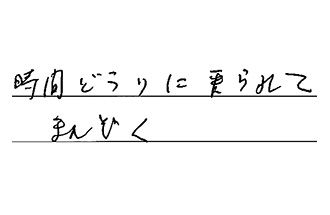 時間どうりに賣られて
まんぞく